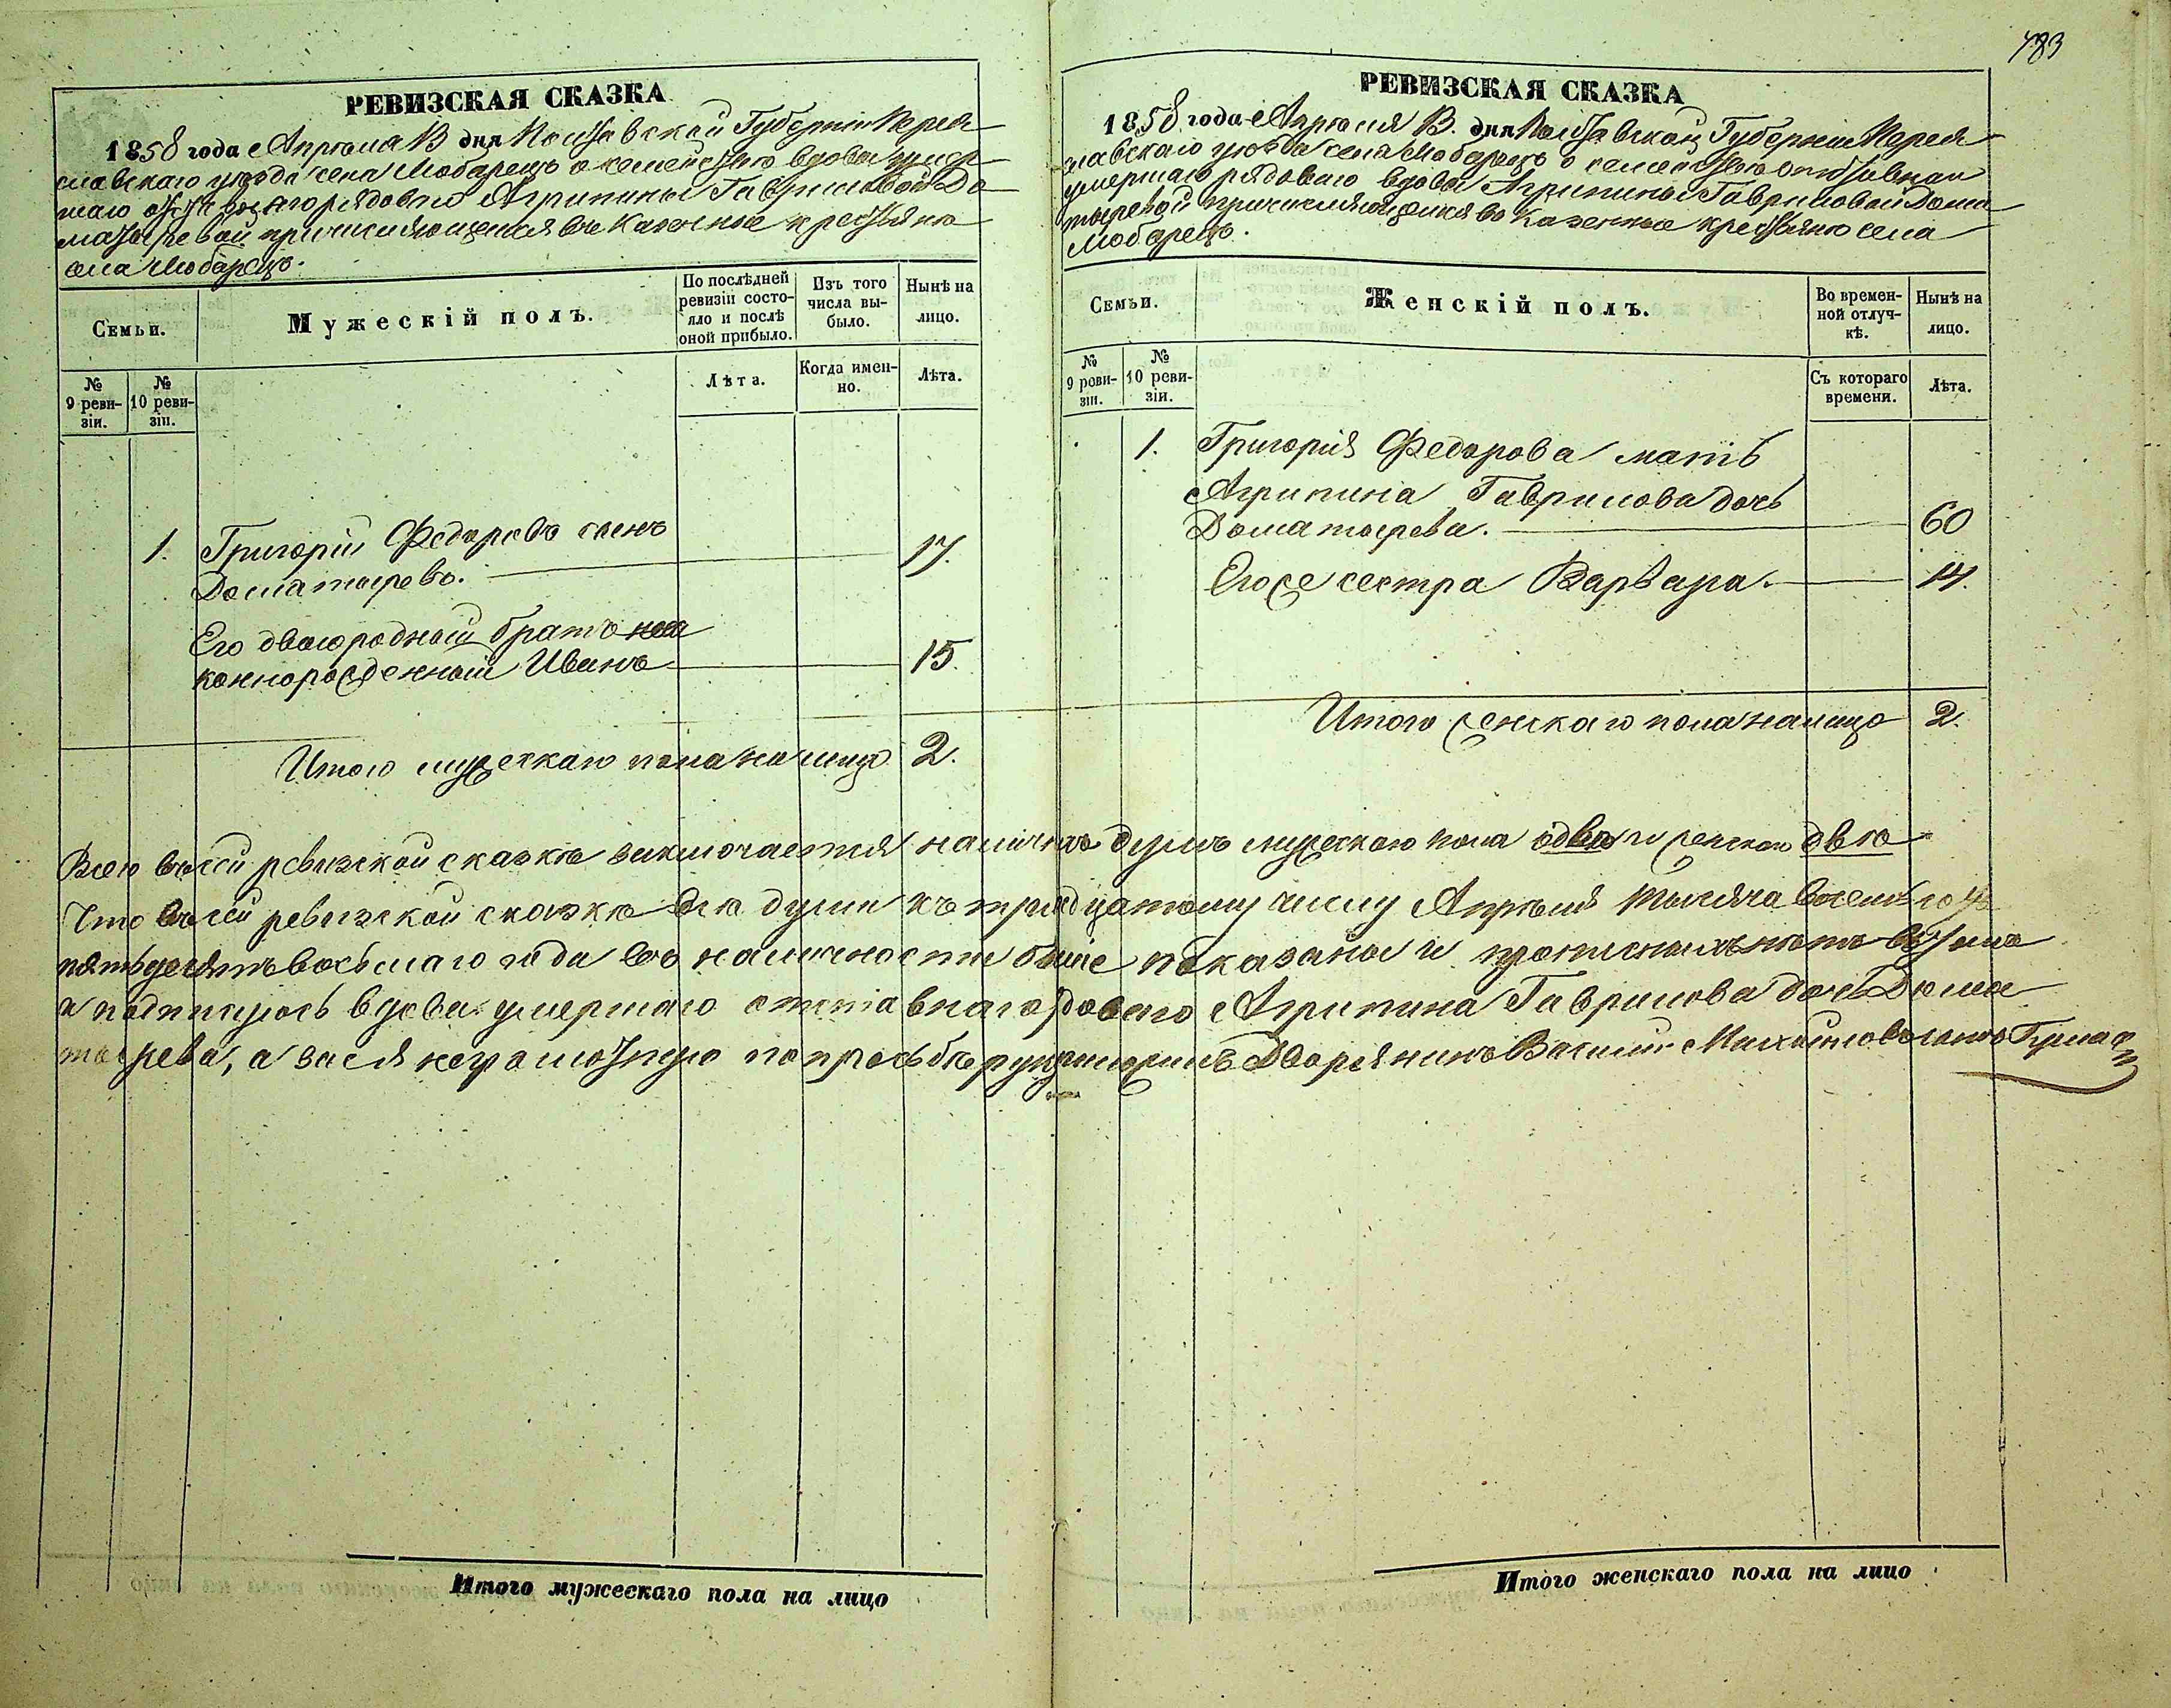 783
РЕВИЗСКАЯ СКАЗКА
1858 года Апреля 13 дня Полтавской Губернии Перея
славскаго уезда села Любарецъ о семействе вдовы умер
шаго отставнаго рядоваго Агрипины Гавриловой До
матыревой причисляющемся въ казенные крестьяне
села Любарецъ.
Семьи.
Мужескій полъ.
По послѣдней
ревизіи состо-
яло и послѣ
оной прибыло.
Изъ того
числа вы-
было.
Нынѣ на
лицо.
№
9 реви-
зіи.
№
10 реви-
зіи.
Лѣта.
Когда имен-
но.
Лѣта.
1. Григорій Федоровъ сынъ
Доматыревъ. 17.
Его двоюродный братъ
коннорожденный Иванъ 15.
Итого мужескаго пола на лицо 2.
РЕВИЗСКАЯ СКАЗКА
1858 года Апреля 13. дня Полтавской Губернии Перея
славскаго уезда села Любарецъ о семействе
умершаго рядоваго вдовы Агрипины Гавриловой Дома
тыревой причисляющемся въ казенные крестьяне села
Любарецъ.
Семьи.
Женскій полъ.
Во времен-
ной отлуч-
кѣ.
Нынѣ на
лицо.
№
9 реви-
зіи.
№
10 реви-
зіи.
Съ котораго
времени.
Лѣта.
1. Григорія Федорова мать
Агрипина Гаврилова дочь
Доматырева. 60
Егоже сестра Варвара. 14.
Итого женскаго пола на лицо 2.
Всего въ сей ревизской сказке заключается наличныхъ душъ мужескаго пола две и женскаго две
Что въ сей ревизской сказке все души къ тринадцатому числу Апреля тысяча восемьсотъ
пятьдесятъ восьмаго года въ наличности бывшіе показаны и прописныхъ нетъ въ томъ
и подписуюсь вдова умершаго отставнаго рядоваго Агрипина Гаврилова дочь Дома
тырева, а за ея неграмотную по прозьбе руку приложилъ Дворянинъ Василий Михайловъ сынъ
Итого мужескаго пола на лицо
Итого женскаго пола на лицо